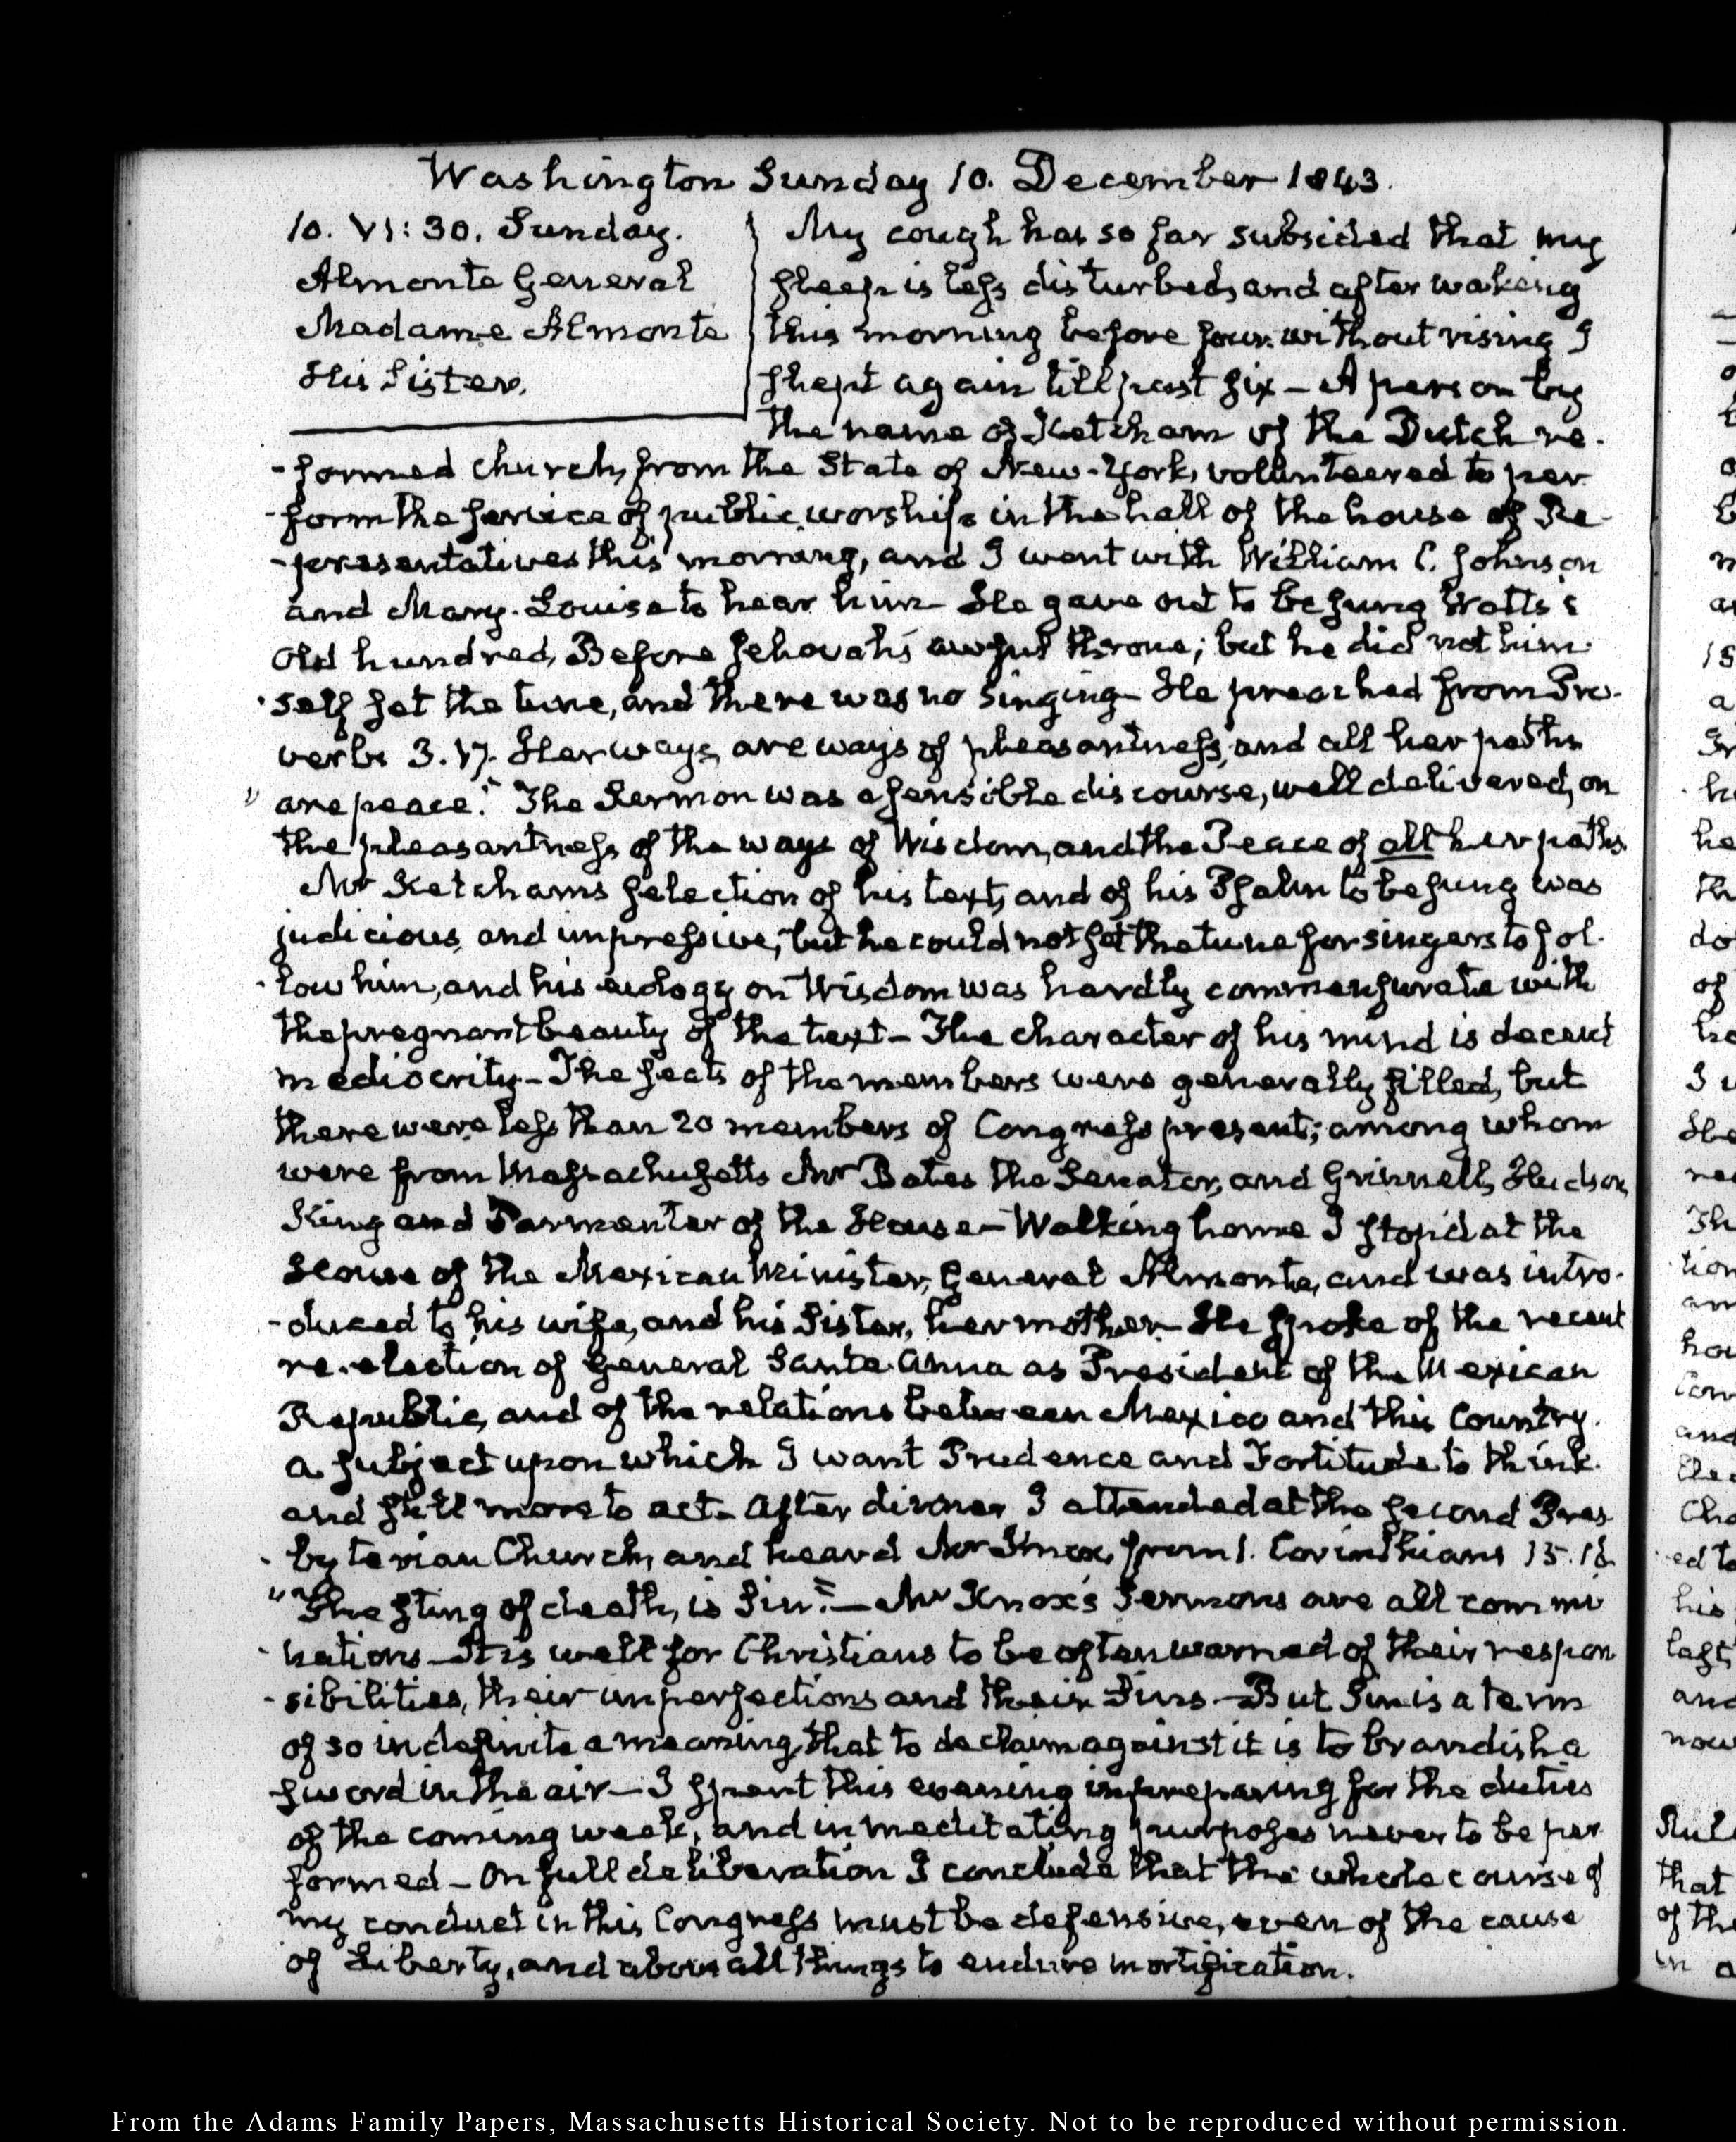 Washington Sunday 10. December 1843.
10. VI: 30. Sunday.
Almonte General
Madame Almonte
His Sister.
My cough has so far subsided that my
sleep is less disturbed, and after waking
this morning before four without rising I
slept again till past six – A person by
the name of Ketcham of the Dutch re-
-formed church, from the State of New-York, volunteered to per
-form the service of public worship in the hall of the house of Re-
-presentatives this morning, and I went with William C. Johnson
and Mary-Louisa to hear him – He gave out to be sung Watts's
Old hundred, Before Jehovah's awful throne; but he did not him-
-self set the tune, and there was no singing – He preached from Pro-
verbs 3. 17. Her ways, are ways of pleasantness, and all her paths
" are peace." The Sermon was a sensible discourse, well delivered, on
the pleasantness of the ways of Wisdom, and the Peace of all her paths.
Mr Ketcham's selection of his text, and of his Psalm to be sung was
judicious, and impressive, but he could not set the tune for singers to fol-
-low him, and his eulogy on Wisdom was hardly commensurate with
the pregnant beauty of the text – The character of his mind is decent
mediocrity – The seats of the members were generally filled, but
there were less than 20 members of Congress present; among whom
were from Massachusetts Mr Bates the Senator, and Grinnell, Hudson,
King and Parmenter of the House – Walking home I stop'd at the
House of the Mexican Minister, General Almonte, and was intro-
-duced to his wife, and his Sister, her mother – He spoke of the recent
re-election of General Santa-Anna as President of the Mexican
Republic, and of the relations between Mexico and this Country.
a subject upon which I want Prudence and Fortitude to think
and still more to act – After dinner I attended at the second Pres
-byterian Church, and heard Mr Knox, from 1. Corinthians 15.
"The sting of death, is Sin." – Mr Knox's Sermons are all commi
-nations – It is well for Christians to be often warned of their respon
-sibilities, their imperfections and their Sins – But Sin is a term
of so indefinite a meaning, that to declaim against it is to brandish a
sword in the air – I spent this evening in preparing for the duties
of the coming week, and in meditating purposes never to be per
formed – On full deliberation I conclude that the whole course of
my conduct in this Congress must be defensive, even of the cause
of Liberty, and above all things to endure mortification.
From the Adams Family Papers, Massachusetts Historical Society. Not to be reproduced without permission.